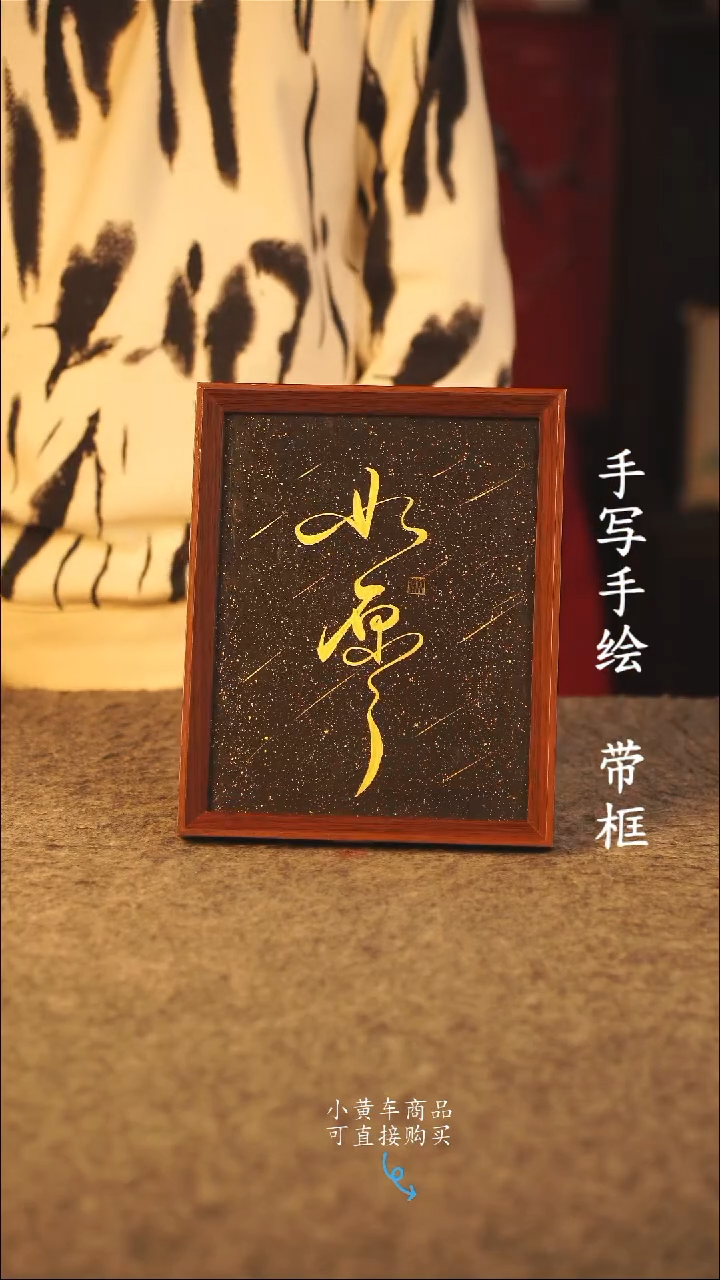 如愿
手写手绘 带框
小黄车商品
可直接购买